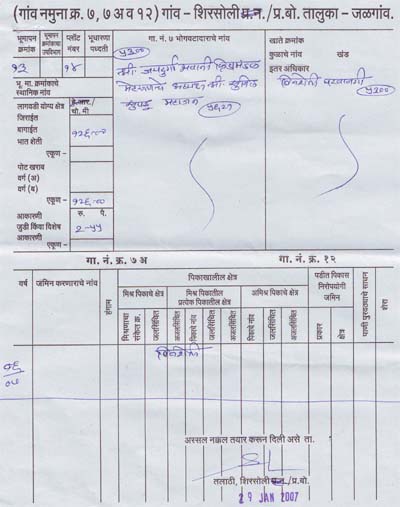 (गांव नमुना क्र. ७, ७अ व १२) गांव - शिरसोली प्र.न. / प्र.बो. तालुका - जळगांव.
भूमापन क्रमांक
भूमापन क्रमांकाचा उपविभाग
प्लॉट नंबर
भूधारणा पध्दती
५२००
गा. नं. ७ भोगवटादाराचे नांव
खाते क्रमांक
कुळाचे नांव खंड
इतर अधिकार
१३
१४
श्री. जयदुर्गा भवानी
बिनशेती परवानगी
५२००
भू. मा. क्रमांकाचे स्थानिक नांव
लागवडी योग्य क्षेत्र
हे.आर/चौ.मी
जिराईत
बागाईत
१२६-००
भात शेती
एकूण -
पोट खराब
वर्ग (अ)
वर्ग (ब)
एकूण -
१२६-००
आकारणी
रु. पै.
जुडी किंवा विशेष आकारणी
२-५५
एकूण -
गा. नं. क्र. ७ अ
गा. नं. क्र. १२
वर्ष
जमिन करणाराचे नांव
हंगाम
पिकाखालील क्षेत्र
पडीत पिकास निरोपयोगी जमिन
पाणी पुरवठ्याचे साधन
शेरा
मिश्र पिकाचे क्षेत्र
मिश्र पिकातील प्रत्येक पिकातील क्षेत्र
अमिश्र पिकाचे क्षेत्र
मिश्रणाचा संकेत क्र.
जलसिंचित
अजलसिंचित
पिकाचे नांव
जलसिंचित
अजलसिंचित
पिकाचे नांव
जलसिंचित
अजलसिंचित
प्रकार
क्षेत्र
०६
०७
बिनशेती
अस्सल नक्कल तयार करून दिली असे ता.
तलाठी, शिरसोली प्र.न. / प्र.बो.
29 JAN 2007